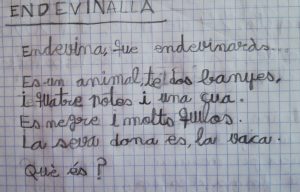 ENDEVINALLA
Endevina, que endevinaràs...
Es un animal, té dos banyes,
i quatre potes i una cua.
Es negre i molto gulos.
La seva dona es, la vaca.
Què és?